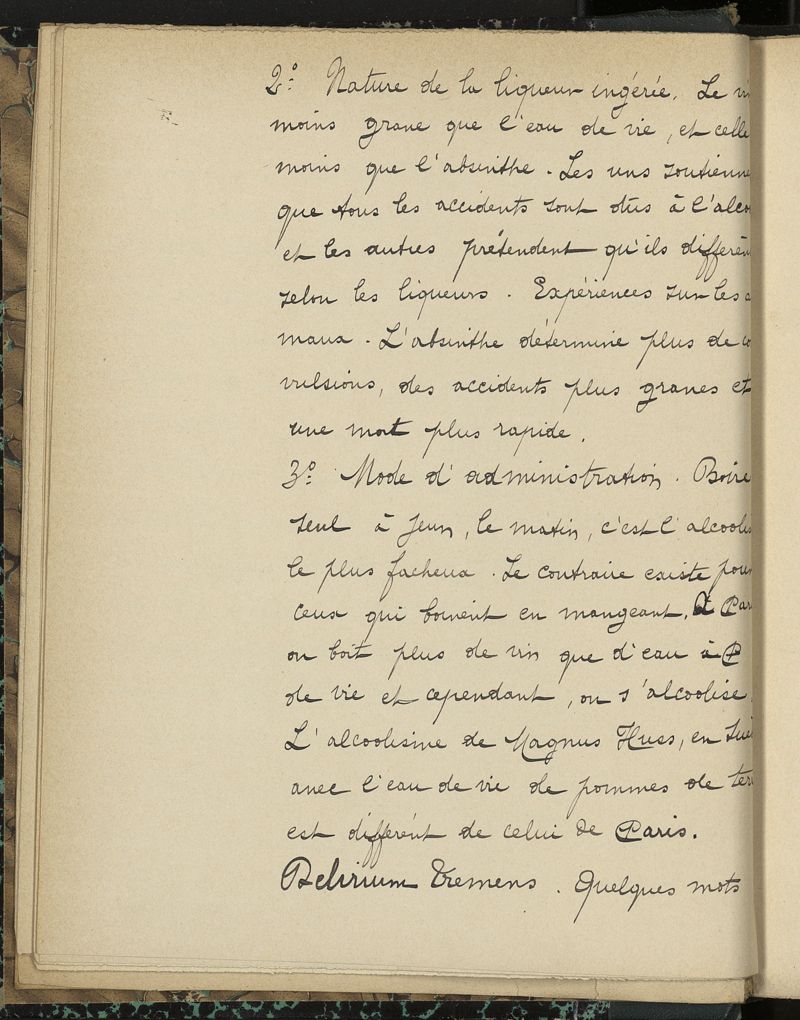 2.° Nature de la liqueur ingérée. Le vi
moins grave que l'eau de vie, et celle
moins que l'absinthe. Les uns soutienne
que tous les accidents sont dûs à l'alco
et les autres prétendent qu'ils diffèren
selon les liqueurs. Expériences sur les a
maux. L'absinthe détermine plus de co
vulsions, des accidents plus graves et
une mort plus rapide.
3.° Mode d'administration. Boire
seul à jeun, le matin, c'est l'alcoolis
le plus facheux. Le contraire existe pour
ceux qui boivent en mangeant. A Par
on boit plus de vin que d'eau à P
de vie et cependant, on s'alcoolise.
L'alcoolisme de Magnus Huss, en Suè
avec l'eau de vie de pommes de terr
est différent de celui de Paris.
Delirium Tremens. Quelques mots